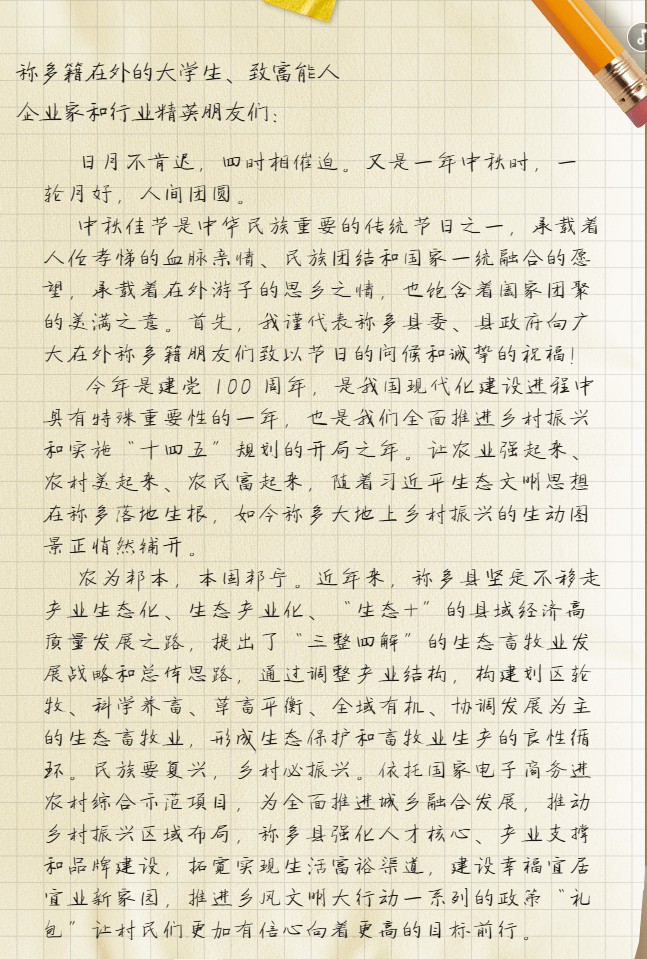 称多籍在外的大学生、致富能人
企业家和行业精英朋友们：
日月不肯迟，四时相催迫。又是一年中秋时，一
轮月好，人间团圆。
中秋佳节是中华民族重要的传统节日之一，承载着
人伦孝悌的血脉亲情、民族团结和国家一统融合的愿
望，承载着在外游子的思乡之情，也饱含着阖家团聚
的美满之意。首先，我谨代表称多县委、县政府向广
大在外称多籍朋友们致以节日的问候和诚挚的祝福！
今年是建党 100 周年，是我国现代化建设进程中
具有特殊重要性的一年，也是我们全面推进乡村振兴
和实施“十四五”规划的开局之年。让农业强起来、
农村美起来、农民富起来，随着习近平生态文明思想
在称多落地生根，如今称多大地上乡村振兴的生动图
景正悄然铺开。
农为邦本，本固邦宁。近年来，称多县坚定不移走
产业生态化、生态产业化、“生态+”的县域经济高
质量发展之路，提出了“三整四解”的生态畜牧业发
展战略和总体思路，通过调整产业结构，构建划区轮
牧、科学养畜、草畜平衡、全域有机、协调发展为主
的生态畜牧业，形成生态保护和畜牧业生产的良性循
环。民族要复兴，乡村必振兴。依托国家电子商务进
农村综合示范项目，为全面推进城乡融合发展，推动
乡村振兴区域布局，称多县强化人才核心、产业支撑
和品牌建设，拓宽实现生活富裕渠道，建设幸福宜居
宜业新家园，推进乡风文明大行动一系列的政策“礼
包”让村民们更加有信心向着更高的目标前行。